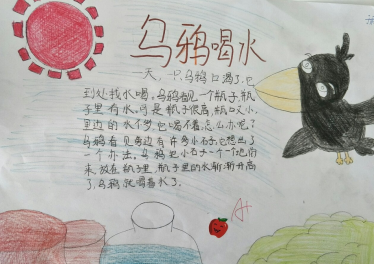 乌鸦喝水
一天，一只乌鸦口渴了，它
到处找水喝。乌鸦看见一个瓶子，瓶
子里有水。可是瓶子很高，瓶口又小，
里边的水不多，它喝不着。怎么办呢？
乌鸦看见旁边有许多小石子，它想出了
一个办法。乌鸦把小石子一个一个地衔起
来，放在瓶子里，瓶子里的水渐渐升高
了，乌鸦就喝着水了。
A+